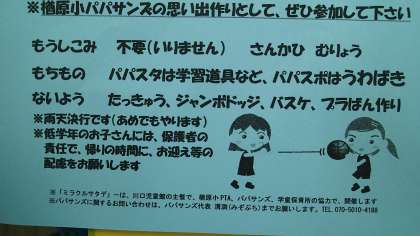 ※楢原小パパサンズの思い出作りとして、ぜひ参加して下さい
もうしこみ　不要(いりません)　さんかひ　むりょう
もちもの　パパスタは学習道具など、パパスポはうわばき
ないよう　たっきゅう、ジャンボドッジ、バスケ、プラばん作り
※雨天決行です(あめでもやります)
※低学年のお子さんには、保護者の
責任で、帰りの時間に、お迎え等の
配慮をお願いします
※「ミラクルサタデ」ーは、川口児童館の主催で、楢原小PTA、パパサンズ、学童保育所の協力で、開催します
※パパサンズに関するお問い合わせは、パパサンズ代表 溝渕(みぞぶち)までお願いします。TEL. 070-5010-4188